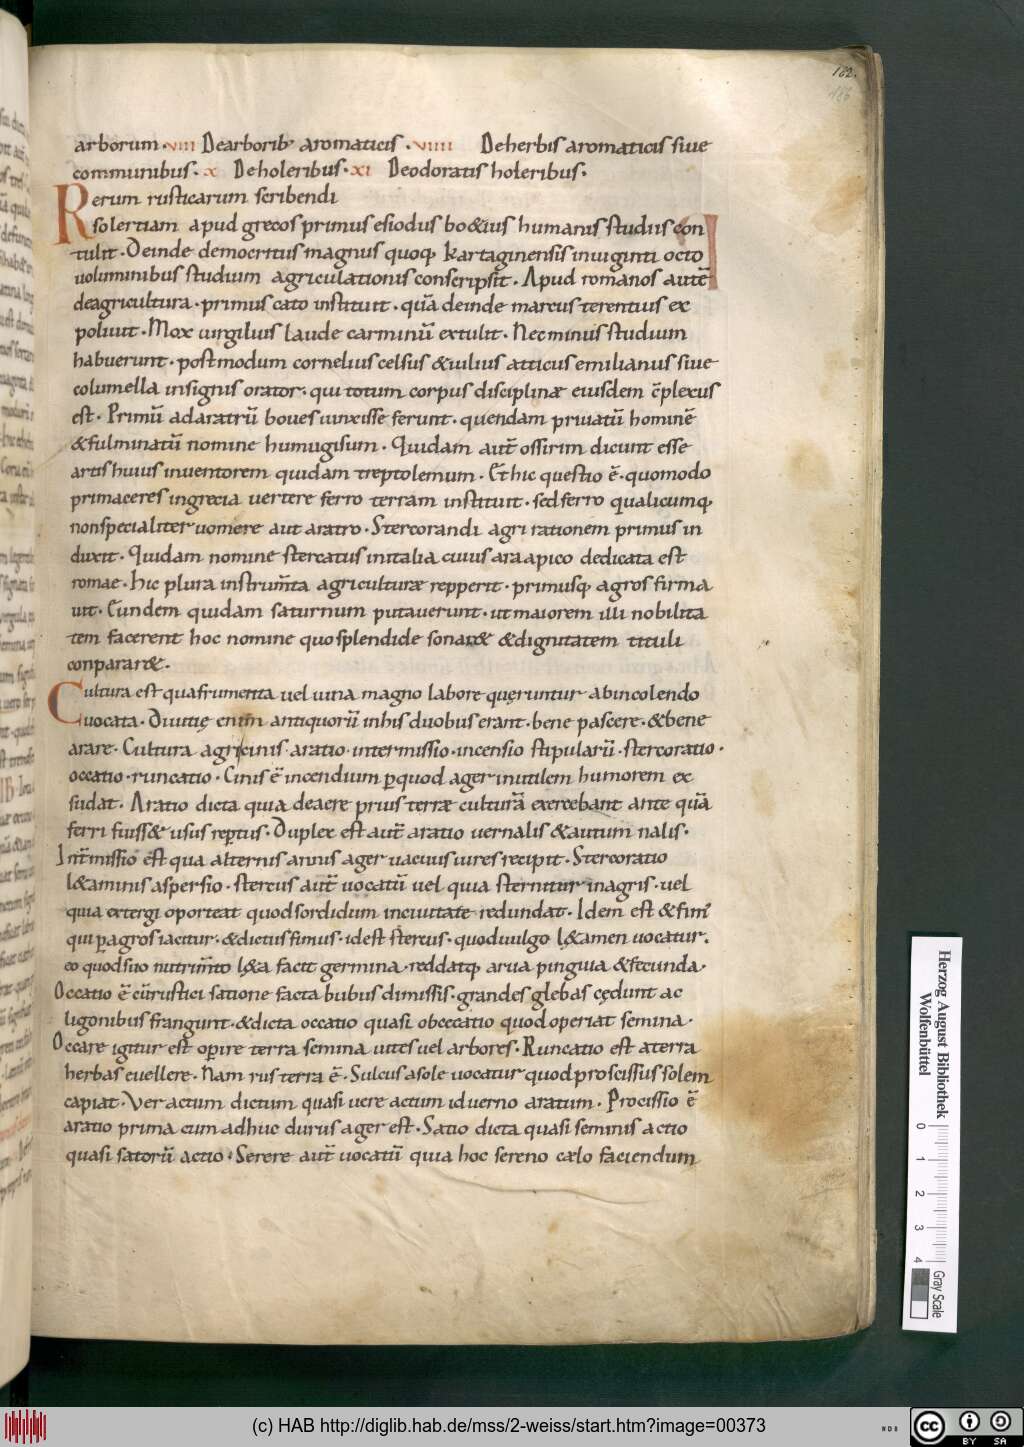 182.
186
arborum · viii Dearborib; aromaticis · viiii Deherbis aromaticis siue
communibus · x Deholeribus · xi Deodoratis holeribus ·
Rerum rusticarum scribendi I
solertiam apud grecos primus esiodus bo&ius humanis studiis con
tulit · Deinde democritus magnus quoq; kartaginensis inuiginti octo
uoluminibus studium agriculationis conscripsit · Apud romanos autē
deagricultura · primus cato instituit · quā deinde marcus terentius ex
poliuit · Mox uirgilius laude carminū extulit · Necminus studium
habuerunt · postmodum cornelius celsus &iulius atticus emilianus siue
columella insignis orator · qui totum corpus disciplinæ eiusdem c̄plexus
est · Primū adaratrū boues iunxisse ferunt · quendam priuatū hominē
&fulminatū nomine humugisum · Quidam aut̄ ossirim dicunt esse
artis huius inuentorem quidam treptolemum · Et hic questio ē · quomodo
primaceres ingrecia uertere ferro terram instituit · sedferro qualicumq;
nonspecialiter uomere aut aratro · Stercorandi agri rationem primus in
duxit · Quidam nomine stercatus initalia cuius ara apico dedicata est
romae · hic plura instrum̄ta agriculturæ repperit · primusq; agros firma
uit · Eundem quidam saturnum putauerunt · ut maiorem illi nobilita
tem facerent hoc nomine quo splendide sonar& &dignitatem tituli
conparar& ·
Cultura est qua frumenta uel uina magno labore quęruntur abincolendo
uocata · Diuitię enim antiquorū inhis duobus erant · bene pascere · &bene
arare · Cultura agri cinis · aratio · intermissio · incensio stipularū · stercoratio ·
occatio · runcatio · Cinis ē incendium ꝑquod ager inutilem humorem ex
sudat · Aratio dicta quia deaere prius terræ culturā exercebant ante quā
ferri fuiss& usus reꝑtus · Duplex est aut̄ aratio uernalis &autum nalis ·
Int̄missio est qua alternis annis ager uacuus uires recipit · Stercoratio
l&aminis aspersio · stercus aut̄ uocatū uel quia sternitur inagris · uel
quia extergi oporteat quod sordidum inciuitate redundat · Idem est &fim'
qui ꝑagros iacitur · &dictus fimus · idest stercus · quod uulgo l&amen uocatur ·
eo quod suo nutrim̄to l&a facit germina · reddatq; arua pinguia &fecunda ·
Occatio ē cū rustici satione facta bubus dimissis · grandes glebas cędunt ac
ligonibus frangunt · &dicta occatio quasi obcecatio quod operiat semina ·
Occare igitur est oꝑire terra semina uites uel arbores · Runcatio est aterra
herbas euellere · Nam rus terra ē · Sulcus a sole uocatur quod proscissus solem
capiat · Ver actum dictum quasi uere actum id uerno aratum · Procissio ē
aratio prima cum adhuc durus ager est · Satio dicta quasi seminis actio
quasi satorū actio · Serere aut̄ uocatū quia hoc sereno cælo faciendum
Herzog August Bibliothek
Wolfenbüttel
0 1 2 3 4
Gray Scale
(c) HAB http://diglib.hab.de/mss/2-weiss/start.htm?image=00373
cc BY SA